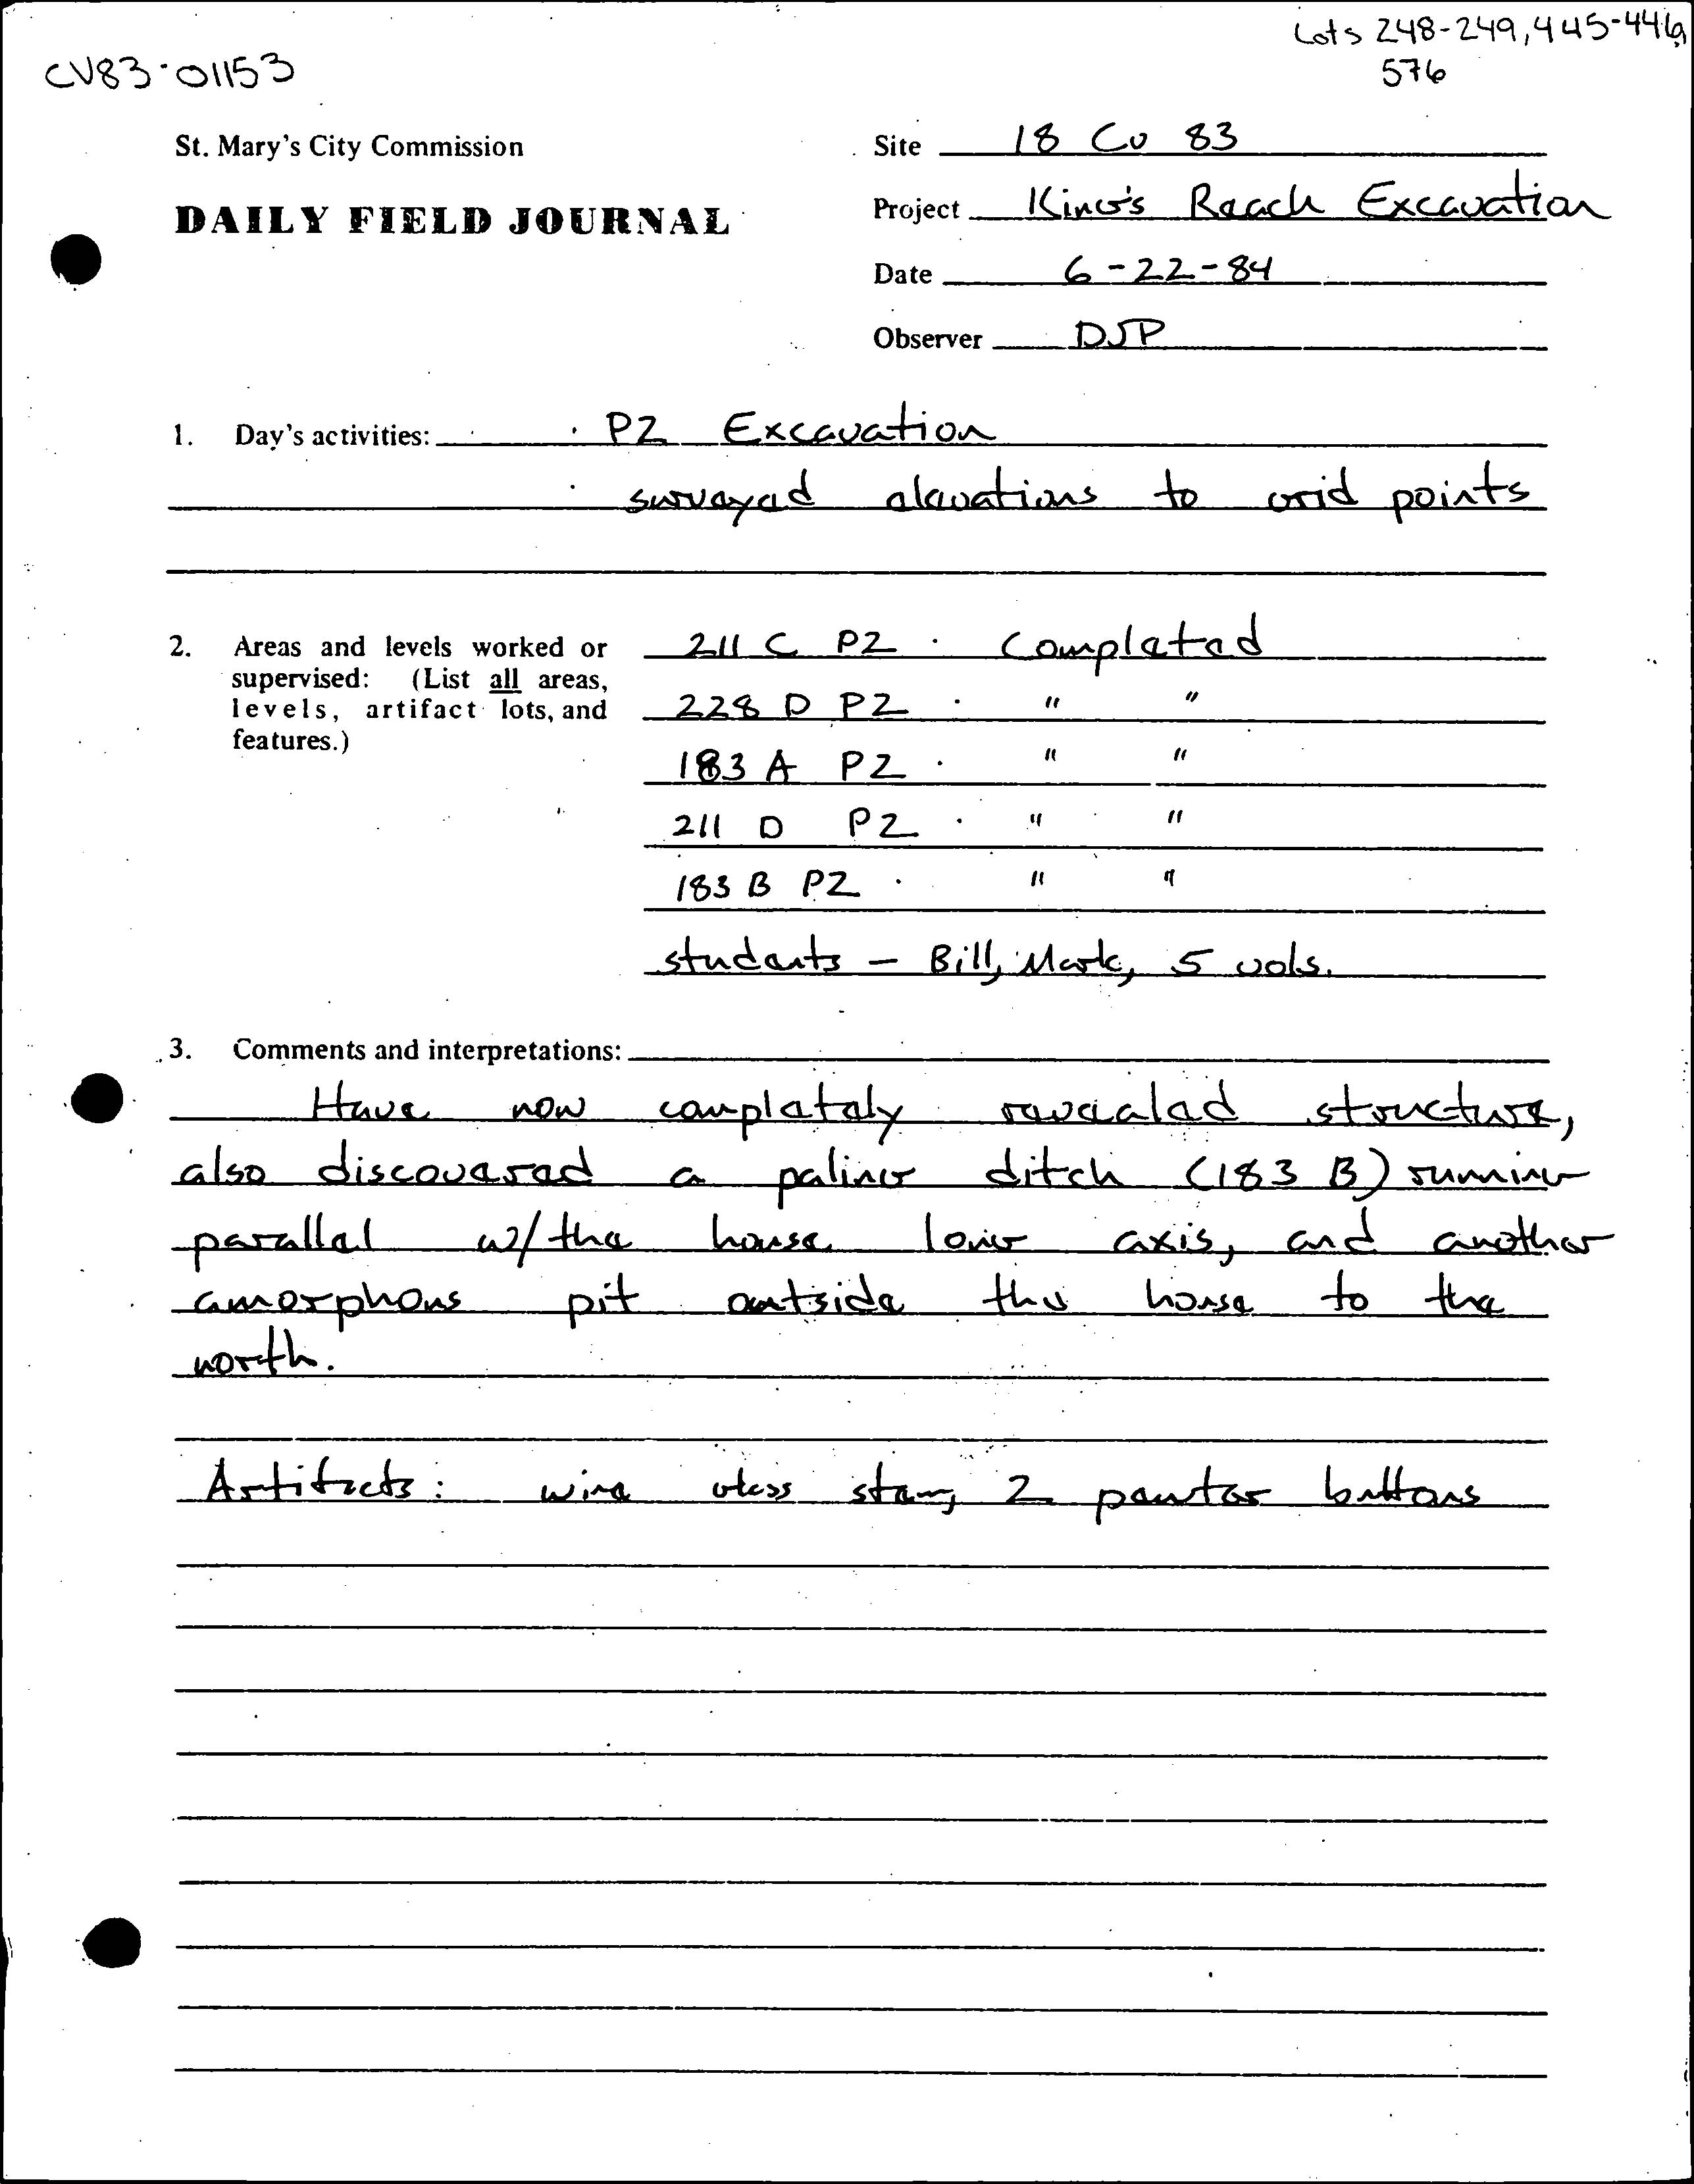 Lots 248-249, 445-446,
576
CV83-01153
St. Mary's City Commission
Site 18 Cv 83
DAILY FIELD JOURNAL
Project King's Reach Excavation
Date 6-22-84
Observer DJP
1. Day's activities: · PZ Excavation
· surveyed elevations to grid points
2. Areas and levels worked or supervised: (List all areas, levels, artifact lots, and features.)
211 C PZ · Completed
228 D PZ · " "
183 A PZ · " "
211 D PZ · " "
183 B PZ · " "
students - Bill, Mark, 5 vols.
3. Comments and interpretations:
Have now completely revealed structure,
also discovered a paling ditch (183 B) running
parallel w/ the house long axis, and another
amorphous pit outside the house to the
north.
Artifacts: wine glass stem, 2 pewter buttons